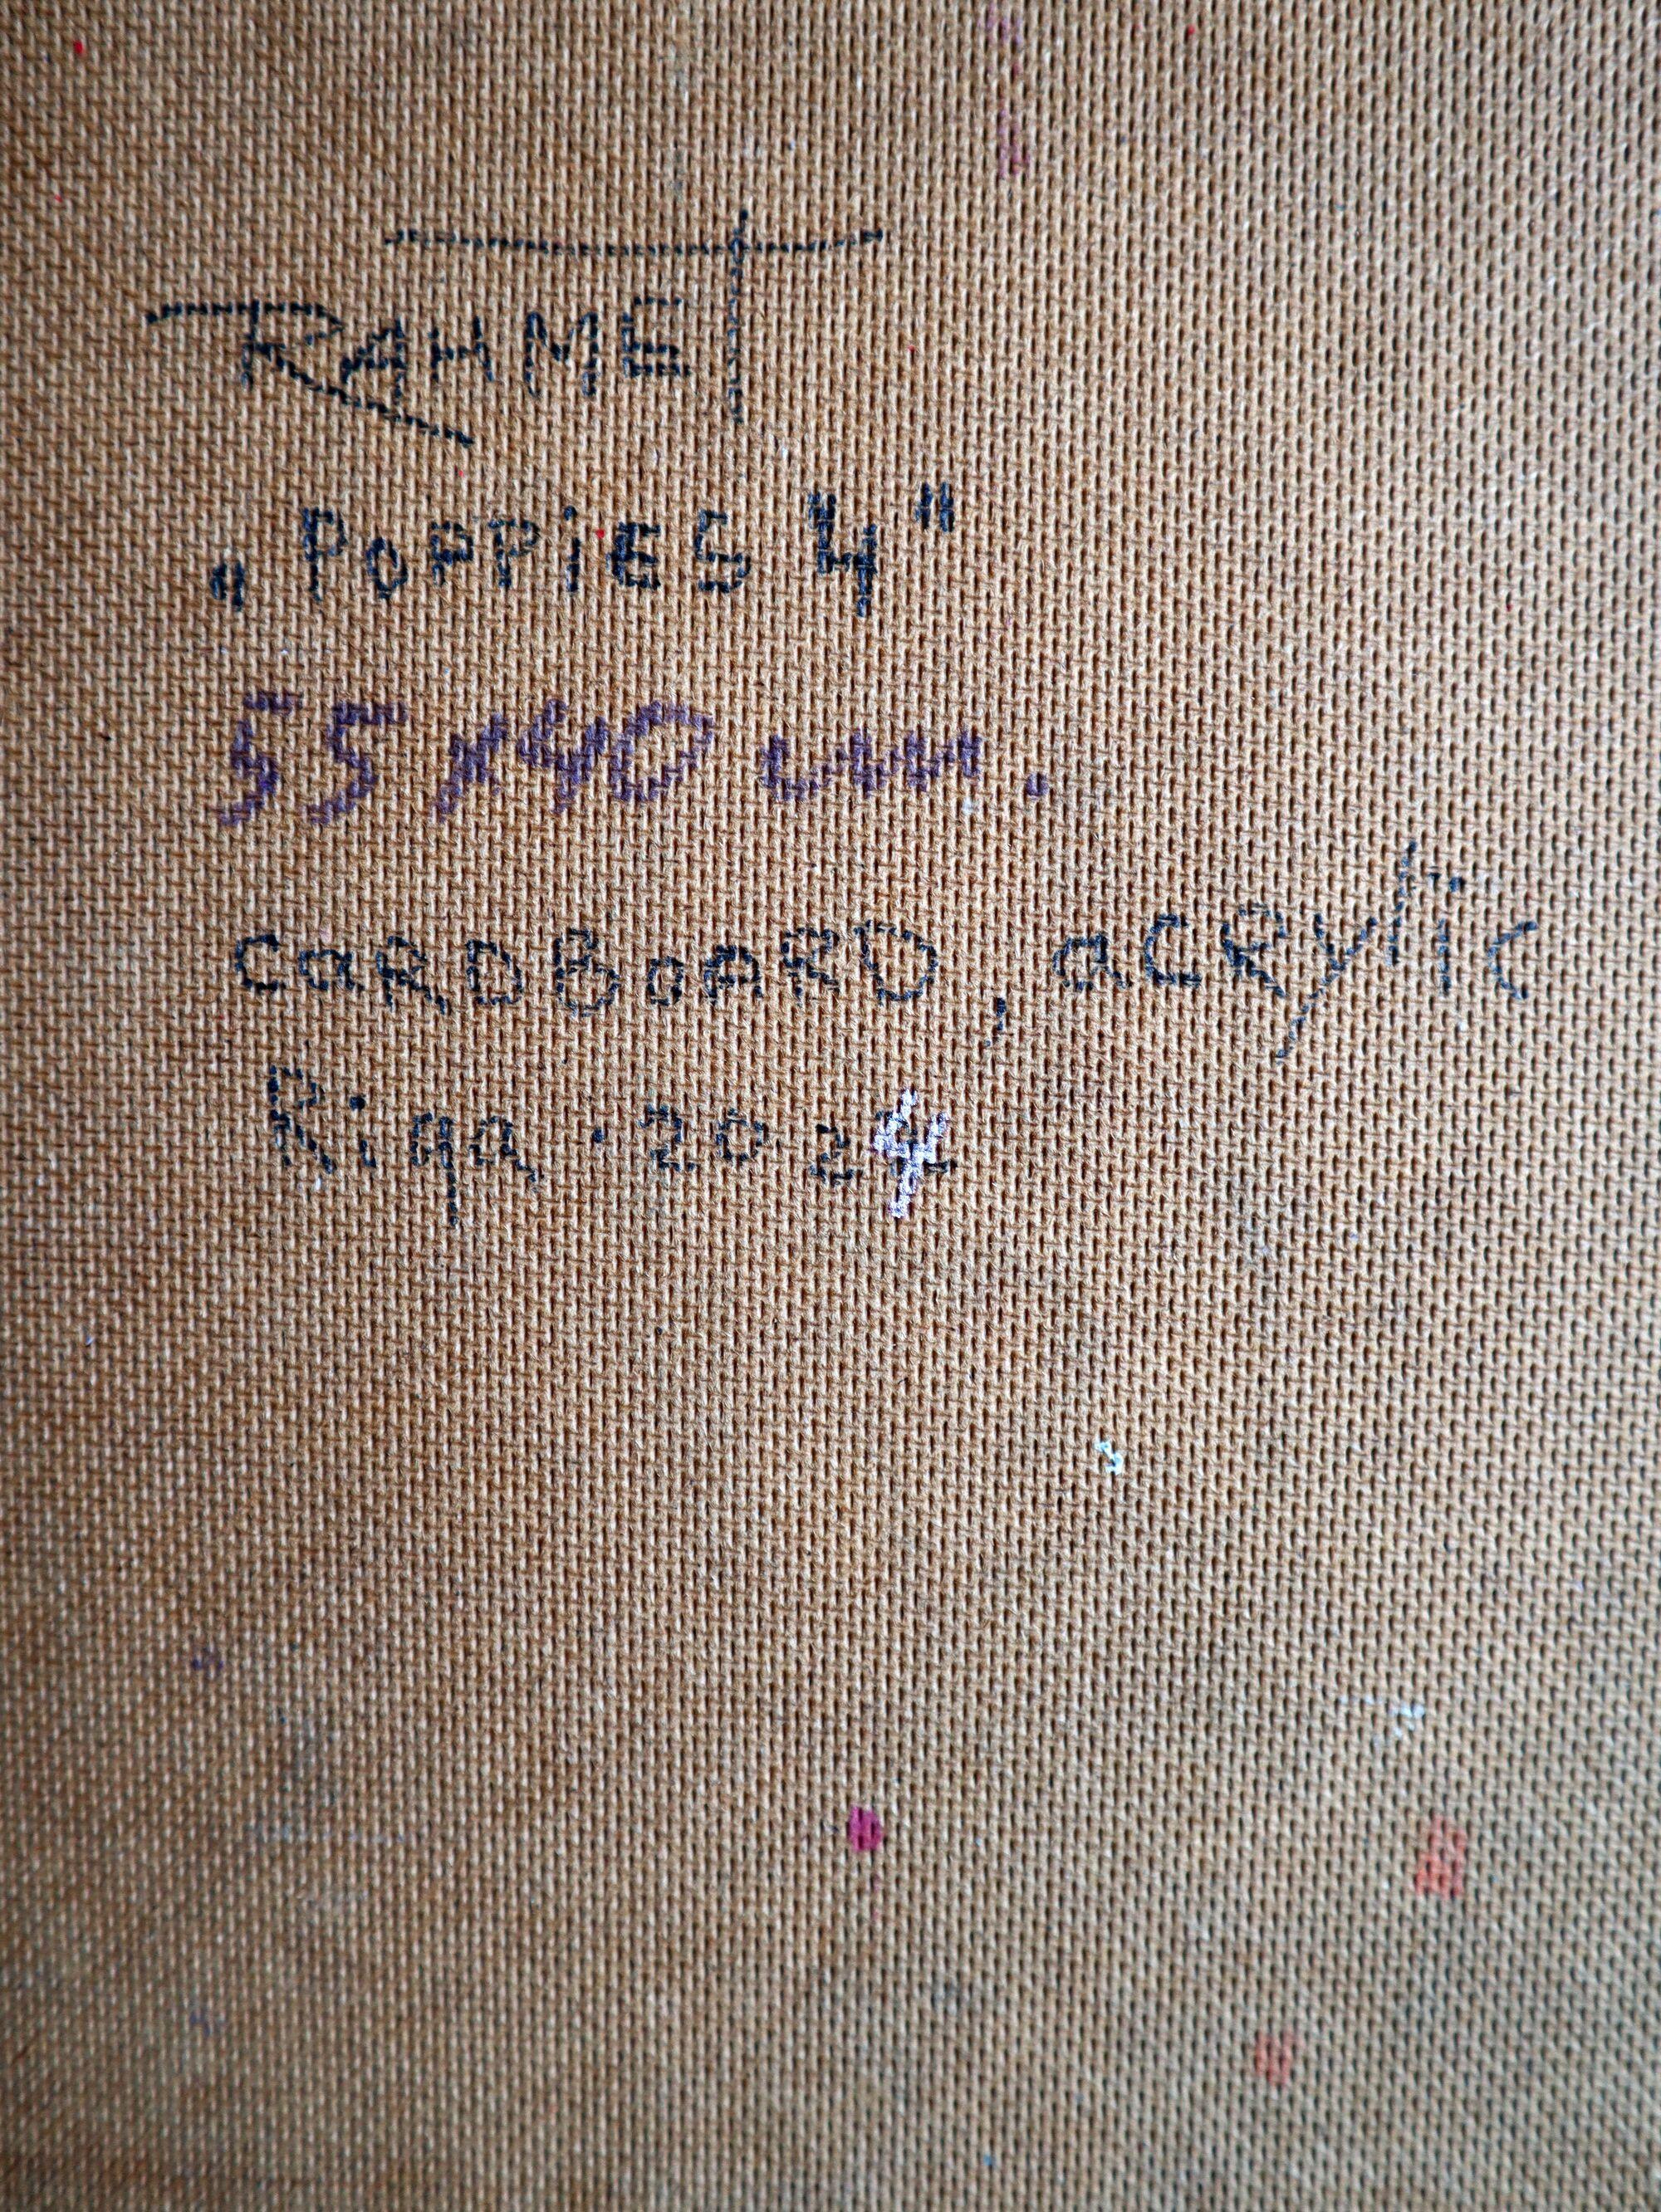 RAHMET
„POPPiES 4"
55x40 cm.
CaRDBoaRD, aCRylic
Riga · 2024